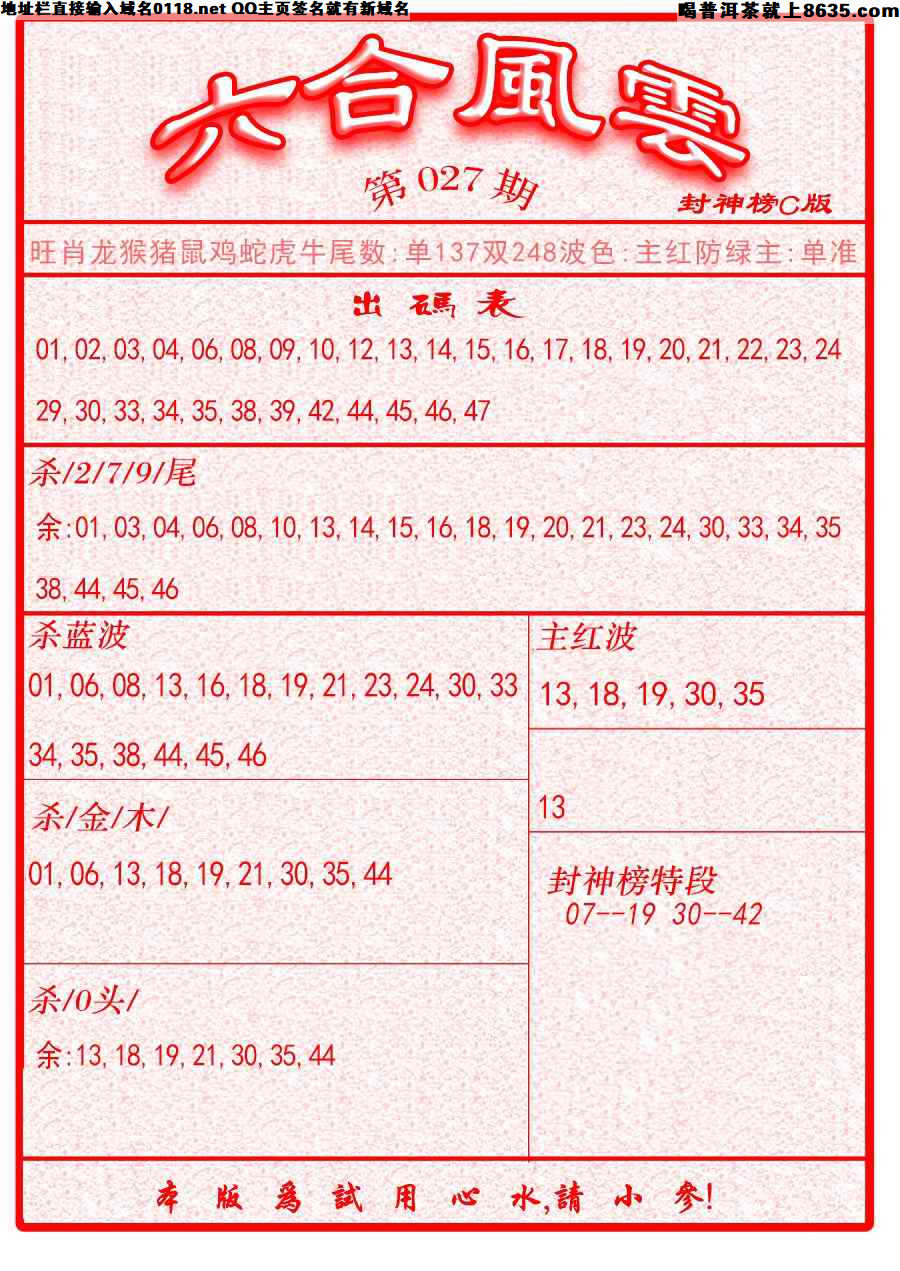 地址栏直接输入域名0118.net QQ主页签名就有新域名
喝普洱茶就上8635.com
六合風雲
第027期
封神榜C版
旺肖龙猴猪鼠鸡蛇虎牛尾数:单137双248波色:主红防绿主:单准
出碼表
01,02,03,04,06,08,09,10,12,13,14,15,16,17,18,19,20,21,22,23,24
29,30,33,34,35,38,39,42,44,45,46,47
杀/2/7/9/尾
余:01,03,04,06,08,10,13,14,15,16,18,19,20,21,23,24,30,33,34,35
38,44,45,46
杀蓝波
01,06,08,13,16,18,19,21,23,24,30,33
34,35,38,44,45,46
主红波
13,18,19,30,35
13
杀/金/木/
01,06,13,18,19,21,30,35,44
封神榜特段
07--19 30--42
杀/0头/
余:13,18,19,21,30,35,44
本版爲試用心水,請小參!